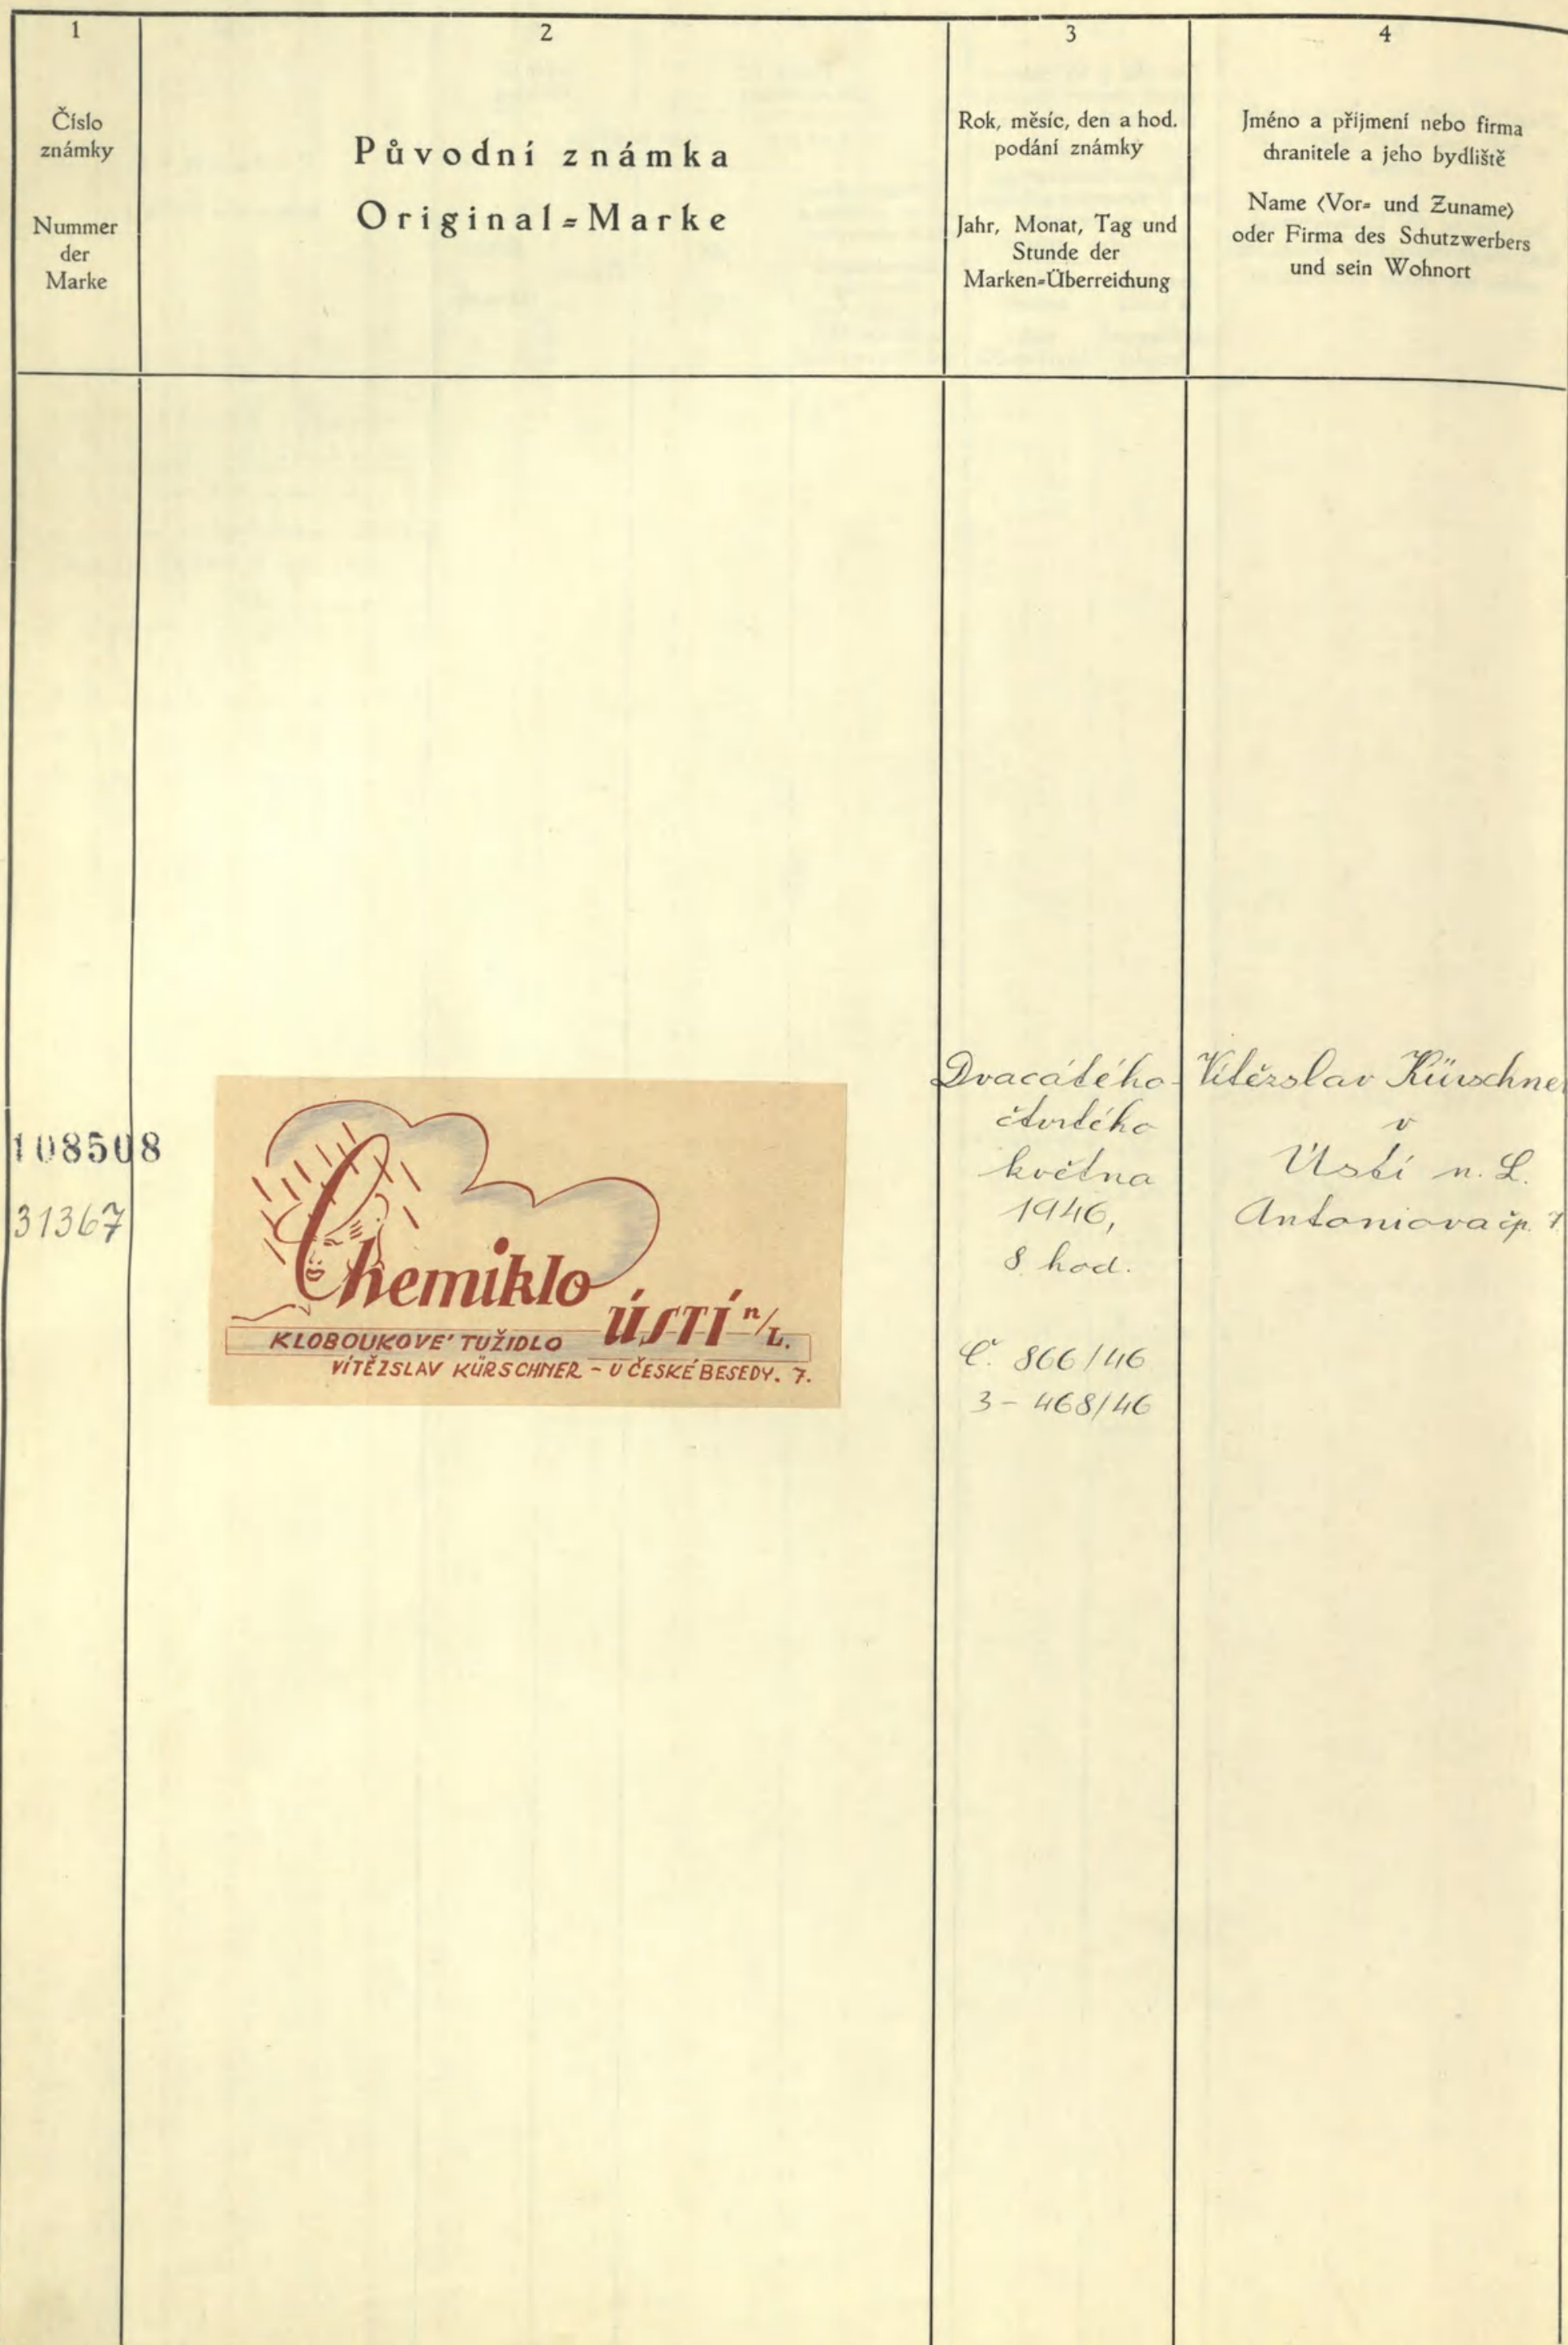 1
Číslo
známky
Nummer
der
Marke
2
Původní známka
Original=Marke
3
Rok, měsíc, den a hod.
podání známky
Jahr, Monat, Tag und
Stunde der
Marken=Überreichung
4
Jméno a příjmení nebo firma
chranitele a jeho bydliště
Name (Vor= und Zuname)
oder Firma des Schutzwerbers
und sein Wohnort
108508
31367
Chemiklo
ÚSTÍ n/L.
KLOBOUKOVÉ TUŽIDLO
VÍTĚZSLAV KÜRSCHNER - U ČESKÉ BESEDY. 7.
Dvacátého
čtvrtého
května
1946,
8 hod.
Č. 866/46
3 - 468/46
Vítězslav Kürschner
v
Ústí n. L.
Antoniova čp. 7